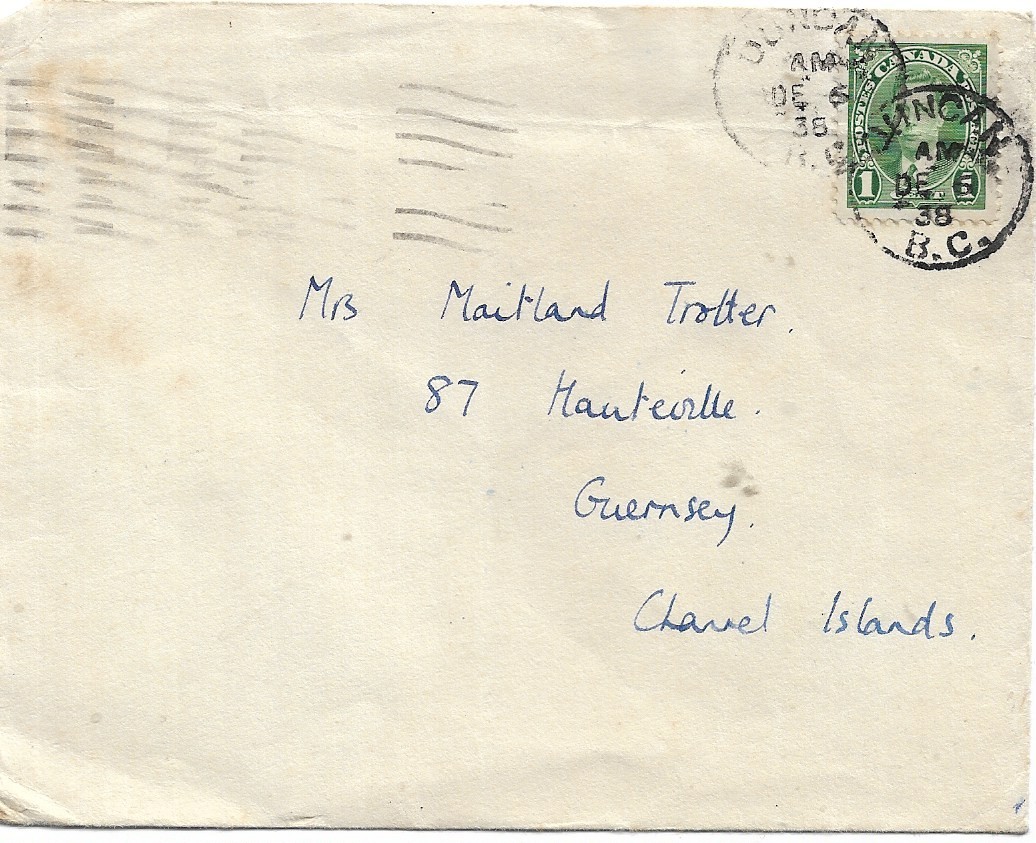 DUNCAN
AM
DE 6
38
B.C.
POSTES CANADA POSTAGE
1 1
DUNCAN
AM
DE 6
38
B.C.
Mrs Maitland Trotter.
87 Hauteville.
Guernsey.
Channel Islands.